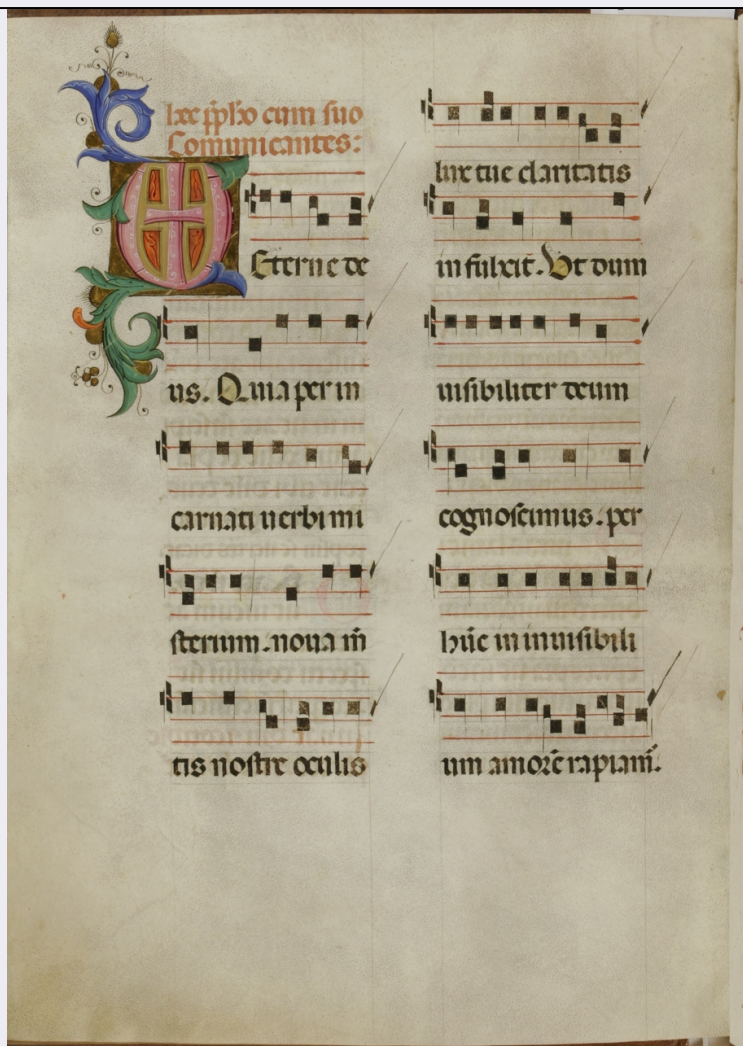 hec p̄p̄h̄o cum suo
Comunicantes:
Eterne de
us. Quia per in
carnati uerbi mi
sterium. noua m̄
tis nostre oculis
lux tue claritatis
infulxit. Ut dum
uisibiliter deum
cognoscimus. per
hūc in inuisibili
um amorē rapiam̄.